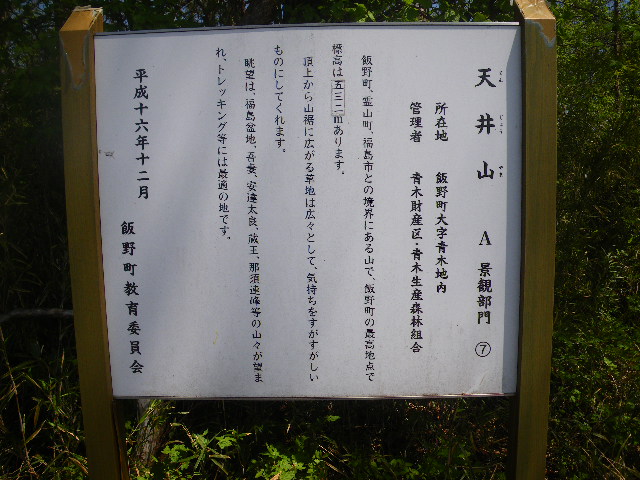 天井山 A 景観部門 ⑦
てん じょう やま
所在地 飯野町大字青木地内
管理者 青木財産区・青木生産森林組合
飯野町、霊山町、福島市との境界にある山で、飯野町の最高地点で
標高は五三二mあります。
頂上から山裾に広がる草地は広々として、気持ちをすがすがしい
ものにしてくれます。
眺望は、福島盆地、吾妻、安達太良、蔵王、那須連峰等の山々が望ま
れ、トレッキング等には最適の地です。
平成十六年十二月
飯野町教育委員会